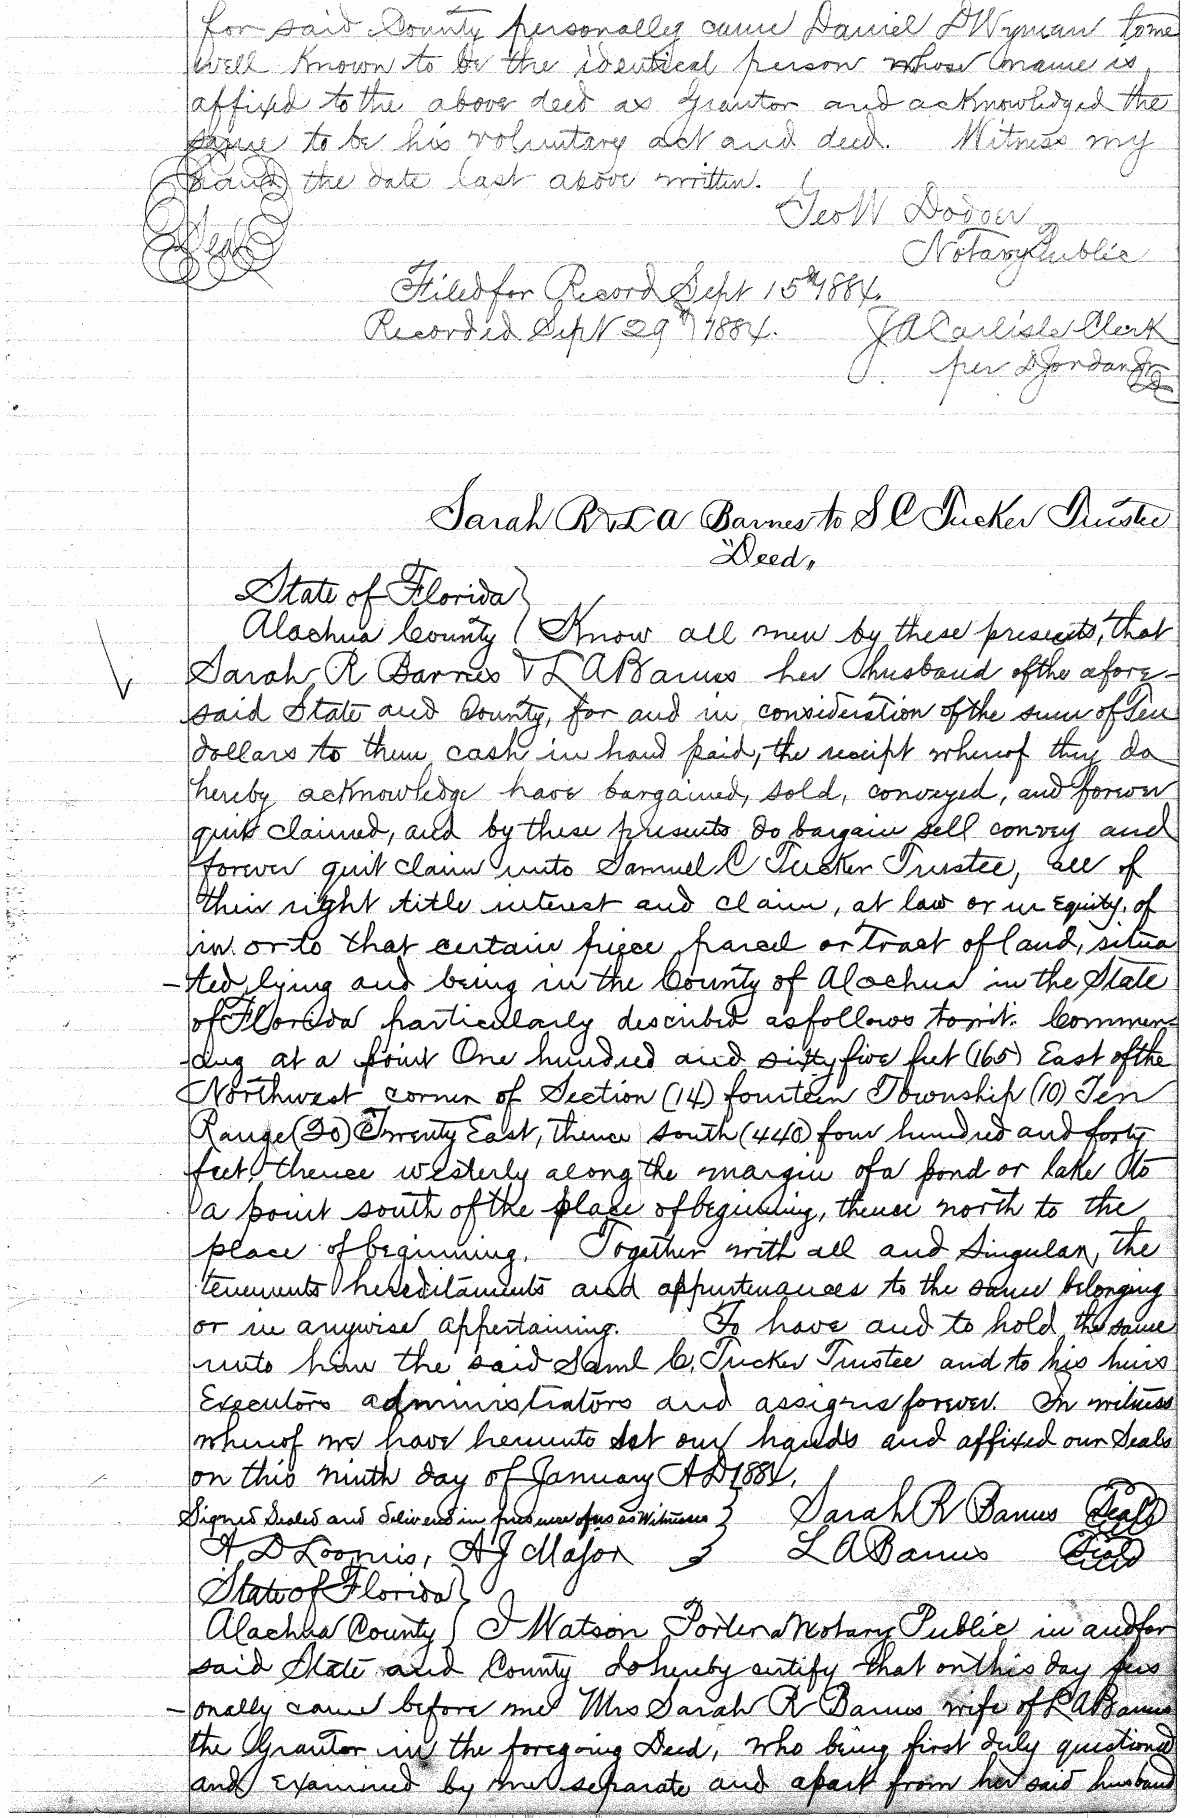 for said County personally came Daniel D Wyman to me
well known to be the identical person whose name is
affixed to the above deed as grantor and acknowledged the
same to be his voluntary act and deed. Witness my
hand the date last above written.
Seal
Geo W Dodge
Notary Public
Filed for Record Sept 15th 1884.
Recorded Sept 29th 1884. J A Carlisle Clerk
per D Jordan Jr DC
Sarah R & L A Barnes to S C Tucker Trustee
"Deed"
State of Florida }
Alachua County { Know all men by these presents, that
Sarah R Barnes & L A Barnes her husband of the afore-
said State and County, for and in consideration of the sum of Ten
dollars to them cash in hand paid, the receipt whereof they do
hereby acknowledge have bargained, sold, conveyed, and forever
quit claimed, and by these presents do bargain sell convey and
forever quit claim unto Samuel C Tucker Trustee, all of
their right title interest and claim, at law or in Equity, of
in or to that certain piece parcel or tract of land, situa
-ted, lying and being in the County of Alachua in the State
of Florida particularly described as follows to wit. Commen-
-cing at a point One hundred and sixty five feet (165) East of the
Northwest corner of Section (14) fourteen Township (10) Ten
Range (20) Twenty East, thence south (440) four hundred and forty
feet, thence westerly along the margin of a pond or lake to
a point south of the place of beginning, thence north to the
place of beginning. Together with all and singular, the
tenements hereditaments and appurtenances to the same belonging
or in anywise appertaining. To have and to hold the same
unto him the said Saml C. Tucker Trustee and to his heirs
Executors administrators and assigns forever. In witness
whereof we have hereunto set our hands and affixed our Seals
on this ninth day of January A D 1884.
Signed Sealed and delivered in presence of us as Witnesses } Sarah R Barnes Seal
A D Loomis, A J Major } L A Barnes Seal
State of Florida }
Alachua County { I Watson Porter a Notary Public in and for
said State and County do hereby certify that on this day pers
-onally came before me Mrs Sarah R Barnes wife of L A Barnes
the Grantor in the foregoing Deed, who being first duly questioned
and examined by me separate and apart from her said husband